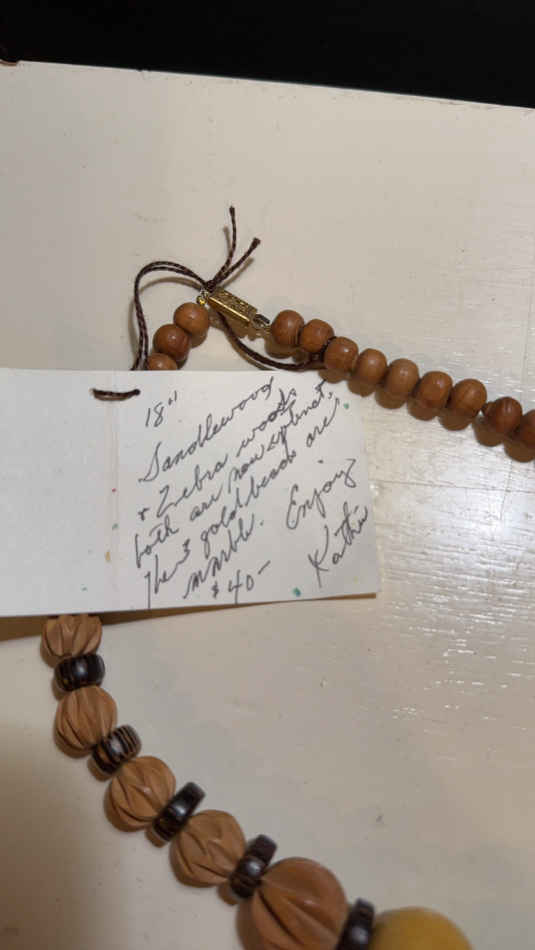 18"
Sandlewood
+ Zebra woods
both are now extinct.
The 3 gold beads are
marble. Enjoy
$40- Kathie